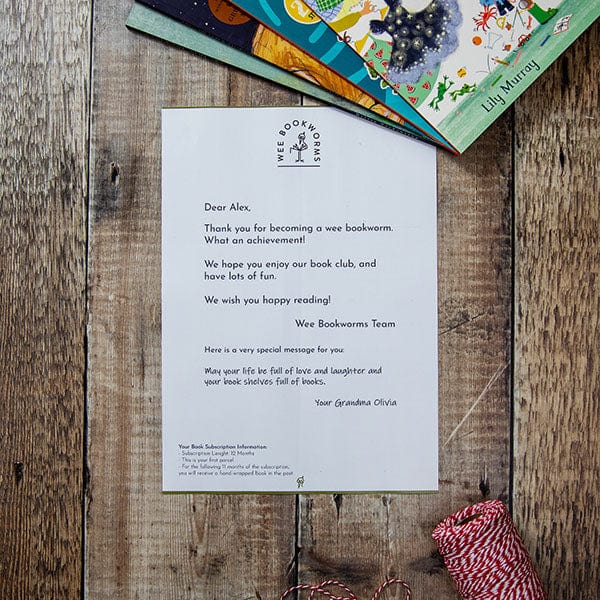 Lily Murray
WEE BOOKWORMS
Dear Alex,
Thank you for becoming a wee bookworm.
What an achievement!
We hope you enjoy our book club, and
have lots of fun.
We wish you happy reading!
Wee Bookworms Team
Here is a very special message for you:
May your life be full of love and laughter and
your book shelves full of books.
Your Grandma Olivia
Your Book Subscription Information:
- Subscription Lenght: 12 Months
- This is your first parcel
- For the following 11 months of the subscription,
you will receive a hand-wrapped book in the post